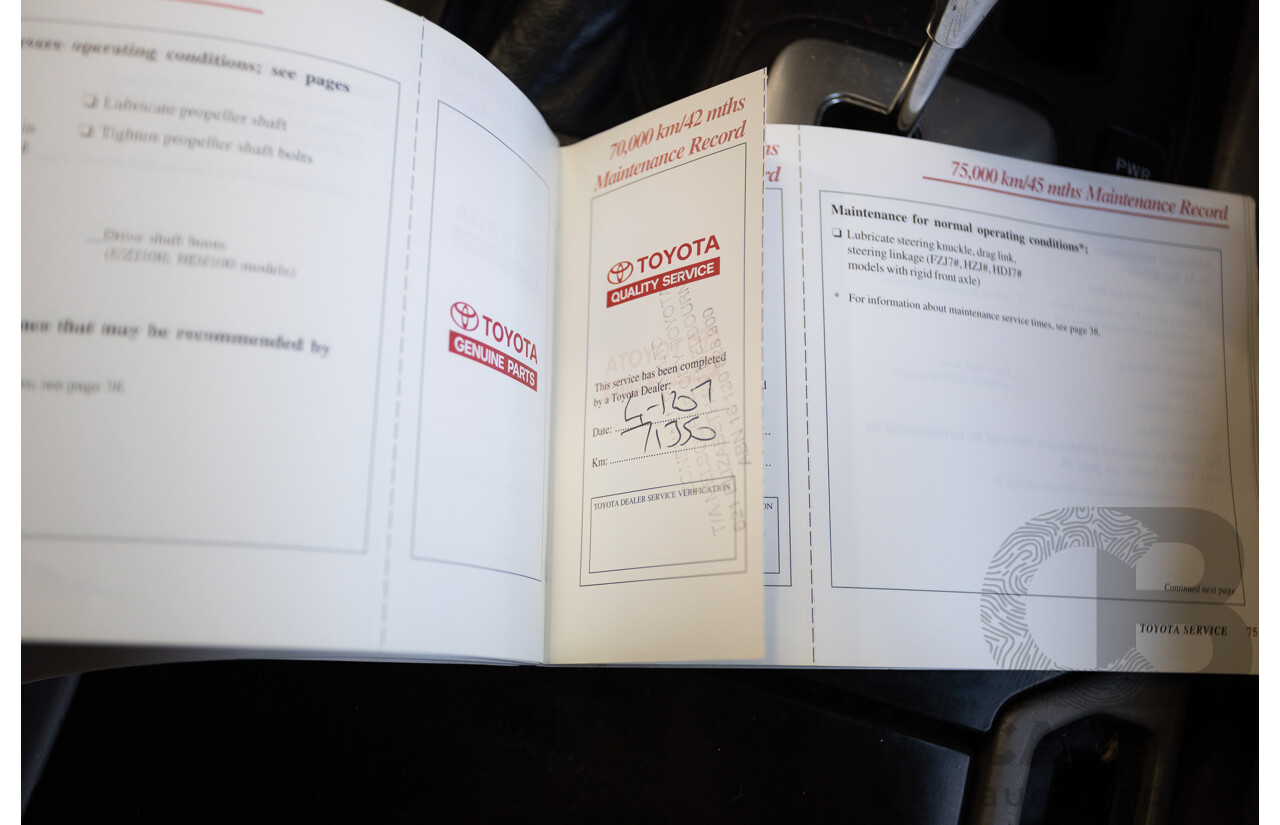 operating conditions; see pages
❏ Lubricate propeller shaft
❏ Tighten propeller shaft bolts
Drive shaft boots
that may be recommended by
see page 38.
TOYOTA
GENUINE PARTS
70,000 km/42 mths
Maintenance Record
TOYOTA
QUALITY SERVICE
This service has been completed
by a Toyota Dealer:
Date:
Km: 71350
TOYOTA DEALER SERVICE VERIFICATION
PWR
75,000 km/45 mths Maintenance Record
Maintenance for normal operating conditions*:
❏ Lubricate steering knuckle, drag link,
steering linkage (FZJ7#, HZJ#, HDJ7#
models with rigid front axle)
* For information about maintenance service times, see page 38.
Continued next page
TOYOTA SERVICE 75